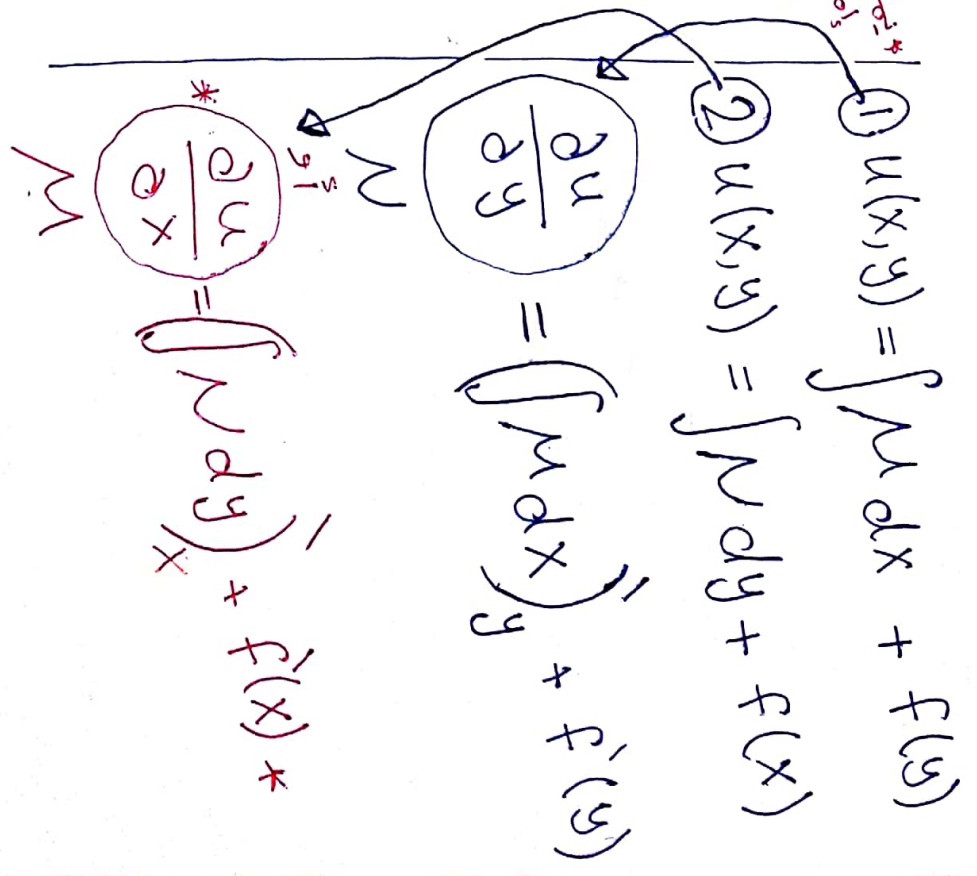 ① u(x,y) = ∫ M dx + f(y)
② u(x,y) = ∫ N dy + f(x)
∂u/∂y = (∫ M dx)'y + f'(y)
N
* ∂u/∂x = (∫ N dy)'x + f'(x) *
M